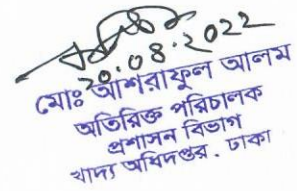 20.08.2022
মোঃ আশরাফুল আলম
অতিরিক্ত পরিচালক
প্রশাসন বিভাগ
খাদ্য অধিদপ্তর, ঢাকা